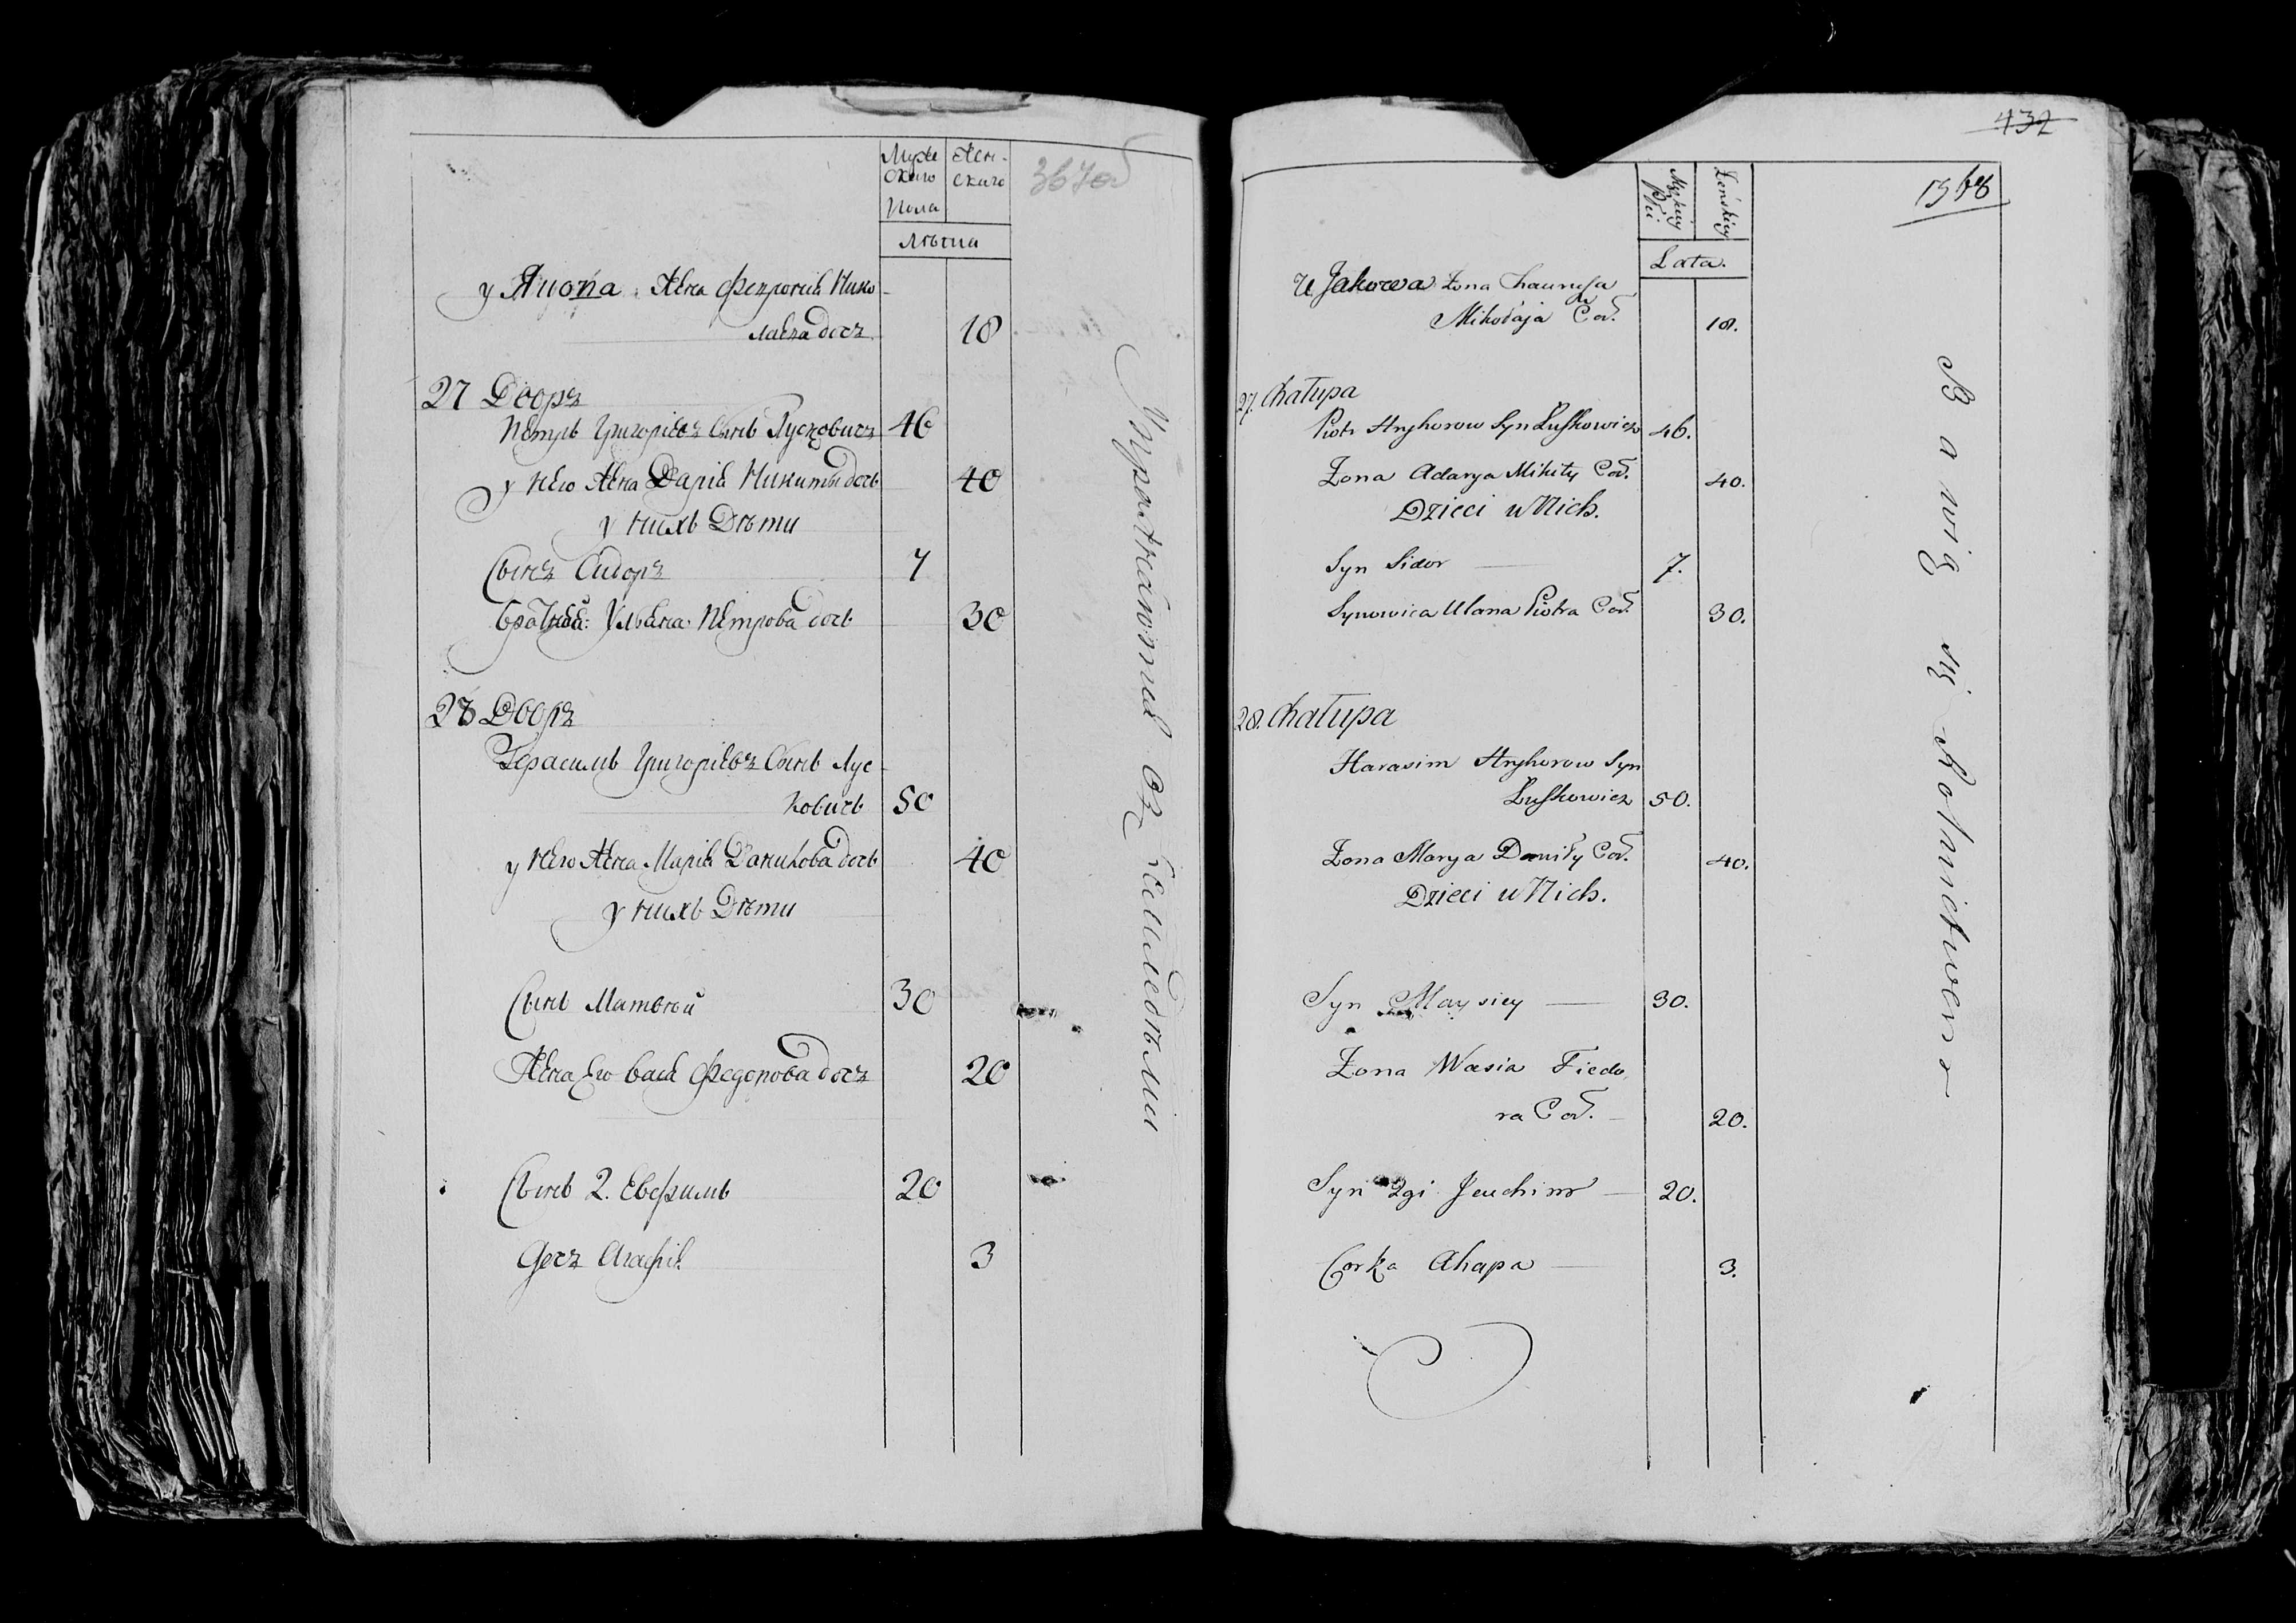 Муже
скаго
Пола
Жен-
скаго
Лѣта
367об
у Якова Жена Феврония Нико-
лаева дочъ 18
27 Дворъ
Петръ Григорьевъ Сынъ Лусковичъ 46
у него Жена Дарья Никиты дочь 40
у нихъ Дѣти
Сынъ Сидоръ 7
Ульяна Петрова дочь 30
28 Дворъ
Герасимъ Григорьевъ Сынъ Лус-
ковичь 50
у него Жена Марья Данилова дочь 40
у нихъ Дѣти
Сынъ Матвѣй 30
Жена его Вася Федорова дочъ 20
Сынъ 2. Евфимъ 20
дочъ Агафья 3
432
Męzkiey
Płci
Żeńskiey
Lata.
U Jakowa Żona
Mikołaja Cór. 18.
27. Chałupa
Piotr Hryhorow Syn Luskowicz 46.
Żona Adarya Mikity Cór. 40.
Dzieci u Nich.
Syn Sidor 7.
Synowica Ulana Piotra Cór. 30.
28. Chałupa
Harasim Hryhorow Syn
Luskowicz 50.
Żona Marya Daniły Cór. 40.
Dzieci u Nich.
Syn 30.
Żona Wasia Fiedo
ra Cór. 20.
Syn 2gi Jeuchim 20.
Corka Ahapa 3.
Bawią się Rolnictwem